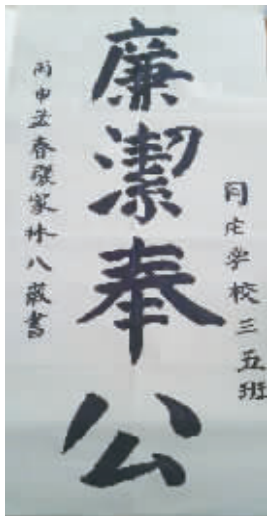 同庄学校三五班
廉潔奉公
丙申孟春張家林八歲書